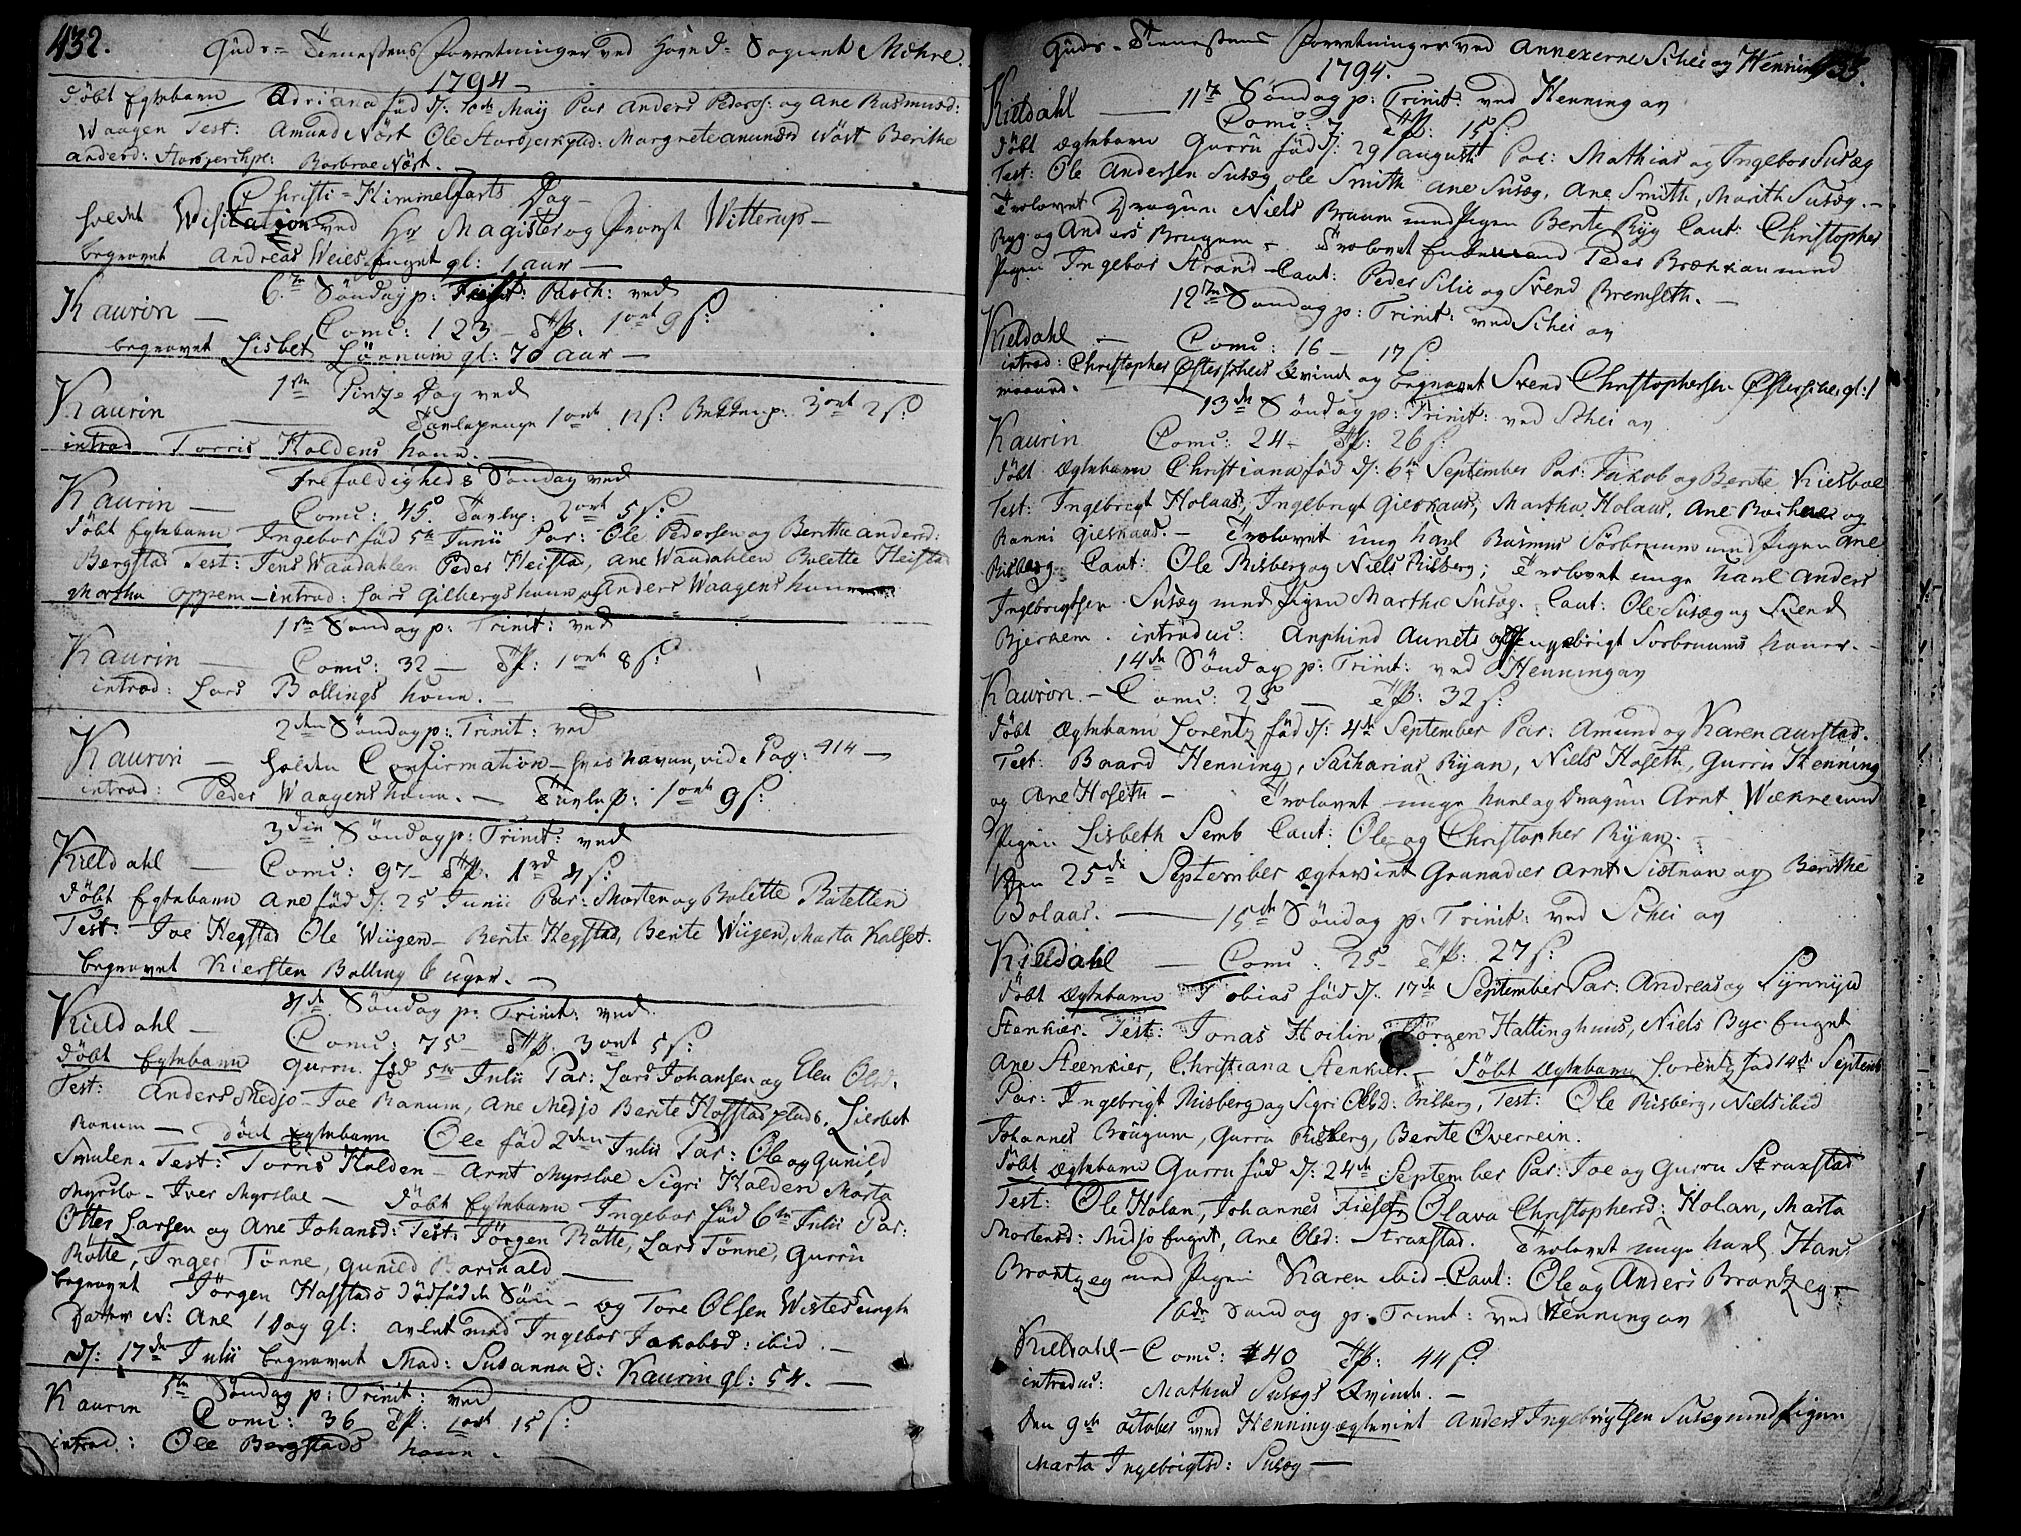 432.
Guds-Tienestens Forretninger ved Hoved-Sognet Mæhre.
1794
Döbt Egtebarn Adriana föd d: 10de Maij Par Anders Peders: og Ane Rasmusd:
Waagen Test: Amund Nöst Ole Margrete Amunds Nöst Berithe
Anders: Barbroe Nöst.
Christi-Himmelfarts Dag
holdet Visitation ved Hr Magister og Provst Witterup
begravet Andreas Weies gl: 1 aar
6te Söndag p: Pasch: ved
Kaurin
Comu: 123 - Tp. 1 ort 9 s:
begravet Lisbet Lönnum gl: 70 aar
1ste Pintze Dag ved
Kaurin
Tavlepenge 1 ort 12 s: 3 ort 2 s:
introd Torris Holdens kone.
Trefoldigheds Söndag ved
Kaurin
Comu: 45 Tavlep: 2 ort 5 s:
Döbt Egtebarn Ingebor föd 5te Junii Par: Ole Pedersen og Berithe Andersd:
Bergstad Test: Jens Waadahlen Peder Heistad, Ane Waadahlen Bolette Heistad
Martha Oppem - introd: Lars Gilbergs kone og Anders Waagens kone
1ste Söndag p: Trinit: ved
Kaurin
Comu: 32 Tp: 1 ort 8 s:
introd: Lars Bollings kone.
2den Söndag p: Trinit: ved
Kaurin
holden Confirmation - hvis navne, vide Pag: 414
introd: Peder Waagens kone. - Tavlep: 1 ort 9 s:
3die Söndag p: Trinit: ved
Kieldahl
Comu: 97 - Tp. 1 rd 4 s:
Döbt Egtebarn Ane föd d: 25 Junii Par: Morten og Bolette Ratetten
Test: Joe Hegstad Ole Wiigen - Berite Hegstad, Berite Wiigen, Marta Kalset.
begravet Kiersten Bolling 6 uger.
4de Söndag p: Trinit: ved
Kieldahl
Comu: 75 - Tp. 3 ort 5 s:
Döbt Egtebarn Gurru föd 5te Julii Par: Lars Johansen og Elen Olsd.
Test: Anders Medjo - Joe Ranum, Ane Medjo Berite Hofstad plads, Lisbet
Ranum - Döbt Egtebarn Ole föd 2den Julii Par: Ole og Gunild
Smulen. Test: Torris Holden - Arnt Myrsloe Sigri Holden Marta
Myrslo - Iver Myrsloe - Döbt Egtebarn Ingebor föd 6te Julii Par:
Otter Larsen og Ane Johansd: Test: Jörgen Rötte, Lars Tönne, Gurru
Rötte, Inger Tönne, Gunild Barhald
begravet Jörgen Hofstads dödföde Sön - og Tore Olsen Wisted
Datter N: Ane 1 Dag gl: avlet med Ingebor Jakobsd: ibid.
d: 17de Julii begravet Mad: Susanna S: Kaurin gl: 54.
5te Söndag p: Trinit: ved
Kaurin
Comu: 36 Tp. 1 ort 15 s:
introd: Ole Bergstads kone.
Guds-Tienestens Forretninger ved Annexerne Schei og Henning
433.
1794.
Kieldahl
11te Söndag p: Trinit: ved Henning av
Comu: 7. Tp: 15 s:
Döbt Egtebarn Gurru föd d: 29 Augusti Par: Mathias og Ingebor Susæg
Test: Ole Andersen Susæg Ole Smith Ane Susæg, Ane Smith, Marith Susæg.
Trolovet Dragun Niels Braum med Pigen Berite Ryg Caut: Christopher
Ryg og Anders Brugum. Trolovet Peder Bræhkan med
Pigen Ingebor Strand - Caut: Peder Silie og Svend Bremseth.
12te Söndag p: Trinit: ved Schei av
Kieldahl
Comu: 16 - 17 s:
introd: Christopher Østerscheis Qvinde og begravet Svend Christophersen Østerschei gl: 1
maaned.
13de Söndag p: Trinit: ved Schei av
Kaurin
Comu: 24 - Tp: 26 s:
Döbt Egtebarn Christiana föd d: 6te September Par: Jakob og Berite Kiesboe
Test: Ingebrigt Holaas, Ingebrigt Gieskaas, Martha Holaas, Ane og
Ranni Gieskaas. - Trolovet ung karl Rasmus Sörbruum med Pigen Ane
Risberg Caut: Ole Risberg og Niels Risberg; Trolovet unge karl Anders
Ingebrigtsen Susæg med Pigen Marthe Susæg. Caut: Ole Susæg og Svend
Bjerkem. introduc: Amphind Aunets og Ingebrigt Sorbruums koner.
14de Söndag p: Trinit: ved Henning av
Kaurin
- Comu: 25 - Tp: 32 s:
Döbt Egtebarn Lorentz föd d: 4de September Par: Amund og Karen Aurstad.
Test: Baard Henning, Sacharias Ryan, Niels Hoseth, Gurru Henning
og Ane Hoseth - Trolovet unge karl og Dragun Arnt Wækre med
Pigen Lisbeth Semb Caut: Ole og Christopher Ryan.
Den 25de September Egteviet Granadeer Arnt Siætnan og Berithe
Bolaas.
15de Söndag p: Trinit: ved Schei av
Kieldahl
Comu: 25 - Tp: 27 s:
Döbt Egtebarn Tobias föd d: 17de September Par: Andreas og Synnyva
Stenkier. Test: Jonas Hoilin, Jörgen Hallinghuus, Niels Bye
Ane Steenkier, Christiana Stenkier - Döbt Egtebarn Lorentz föd 14de Septemb
Par: Ingebrigt Risberg og Sigri Olsd: Risberg, Test: Ole Risberg, Niels ibid
Johannes Brugum, Gurru Risberg, Berite Overrein.
Döbt Egtebarn Gurru föd d: 24de September Par: Joe og Gurru Strugstad
Test: Ole Holan, Johannes Fieset, Olava Christophersd: Holan, Marta
Mortensd: Medjo, Ane Olsd: Strugstad. Trolovet unge karl Hans
Brantzeg med Pigen Karen ibid - Caut: Ole og Anders Brantzeg
16de Söndag p: Trinit: ved Henning av
Kieldahl
- Comu: 40 Tp: 44 s:
introduc: Mathias Susægs Qvinde.
Den 9de October ved Henning egteviet Anders Ingebrigtsen Susæg med Pigen
Marta Ingebrigtsd: Susæg